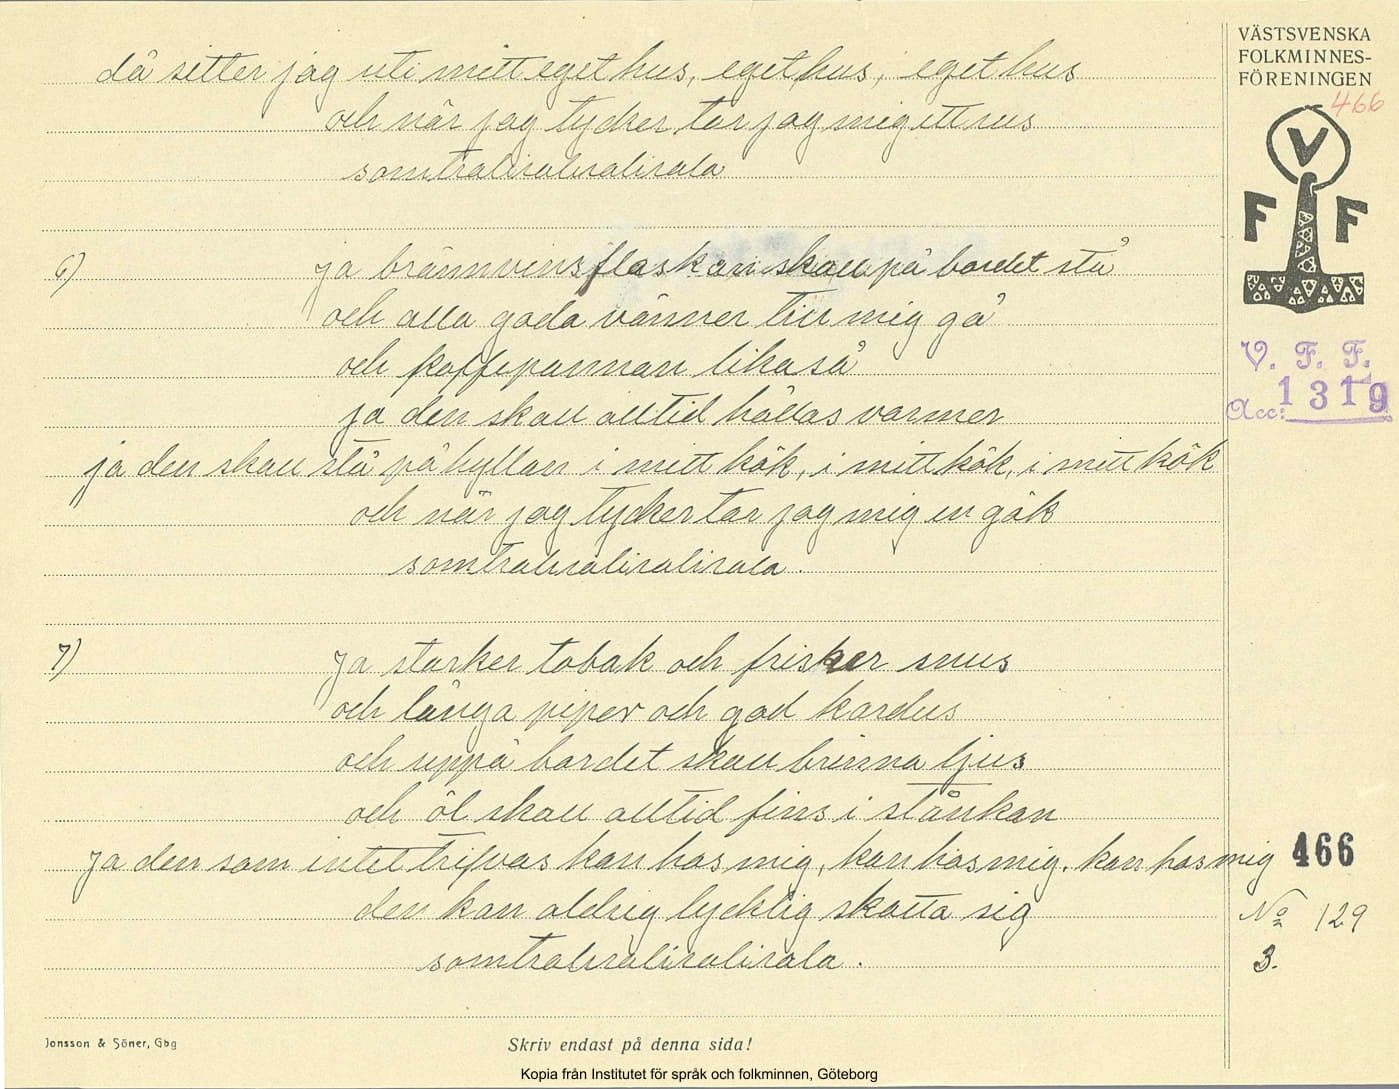 då sitter jag uti mitt eget hus, eget hus, eget hus
och när jag tycker tar jag mig ett rus
somtraliraliralirala
6) Ja brännvinsflaskan skall på bordet stå
och alla goda vänner till mig gå
och kaffepannan likaså
ja den skall alltid hållas varmer
ja den skall stå på hyllan i mitt kök, i mitt kök, i mitt kök
och när jag tycker tar jag mig en gök
somtraliraliralirala.
7) Ja starker tobak och frisker snus
och långa piper och god kardus
och uppå bordet skall brinna ljus
och öl skall alltid fins i stånkan
Ja den som intet trifvas kan hos mig, kan hos mig, kan hos mig
den kan aldrig lycklig skatta sig
somtraliraliralirala.
VÄSTSVENSKA
FOLKMINNES-
FÖRENINGEN
466
V
F F
V. F. F.
Acc: 1319
466
No 129
3.
Jonsson & Söner, Gbg
Skriv endast på denna sida!
Kopia från Institutet för språk och folkminnen, Göteborg